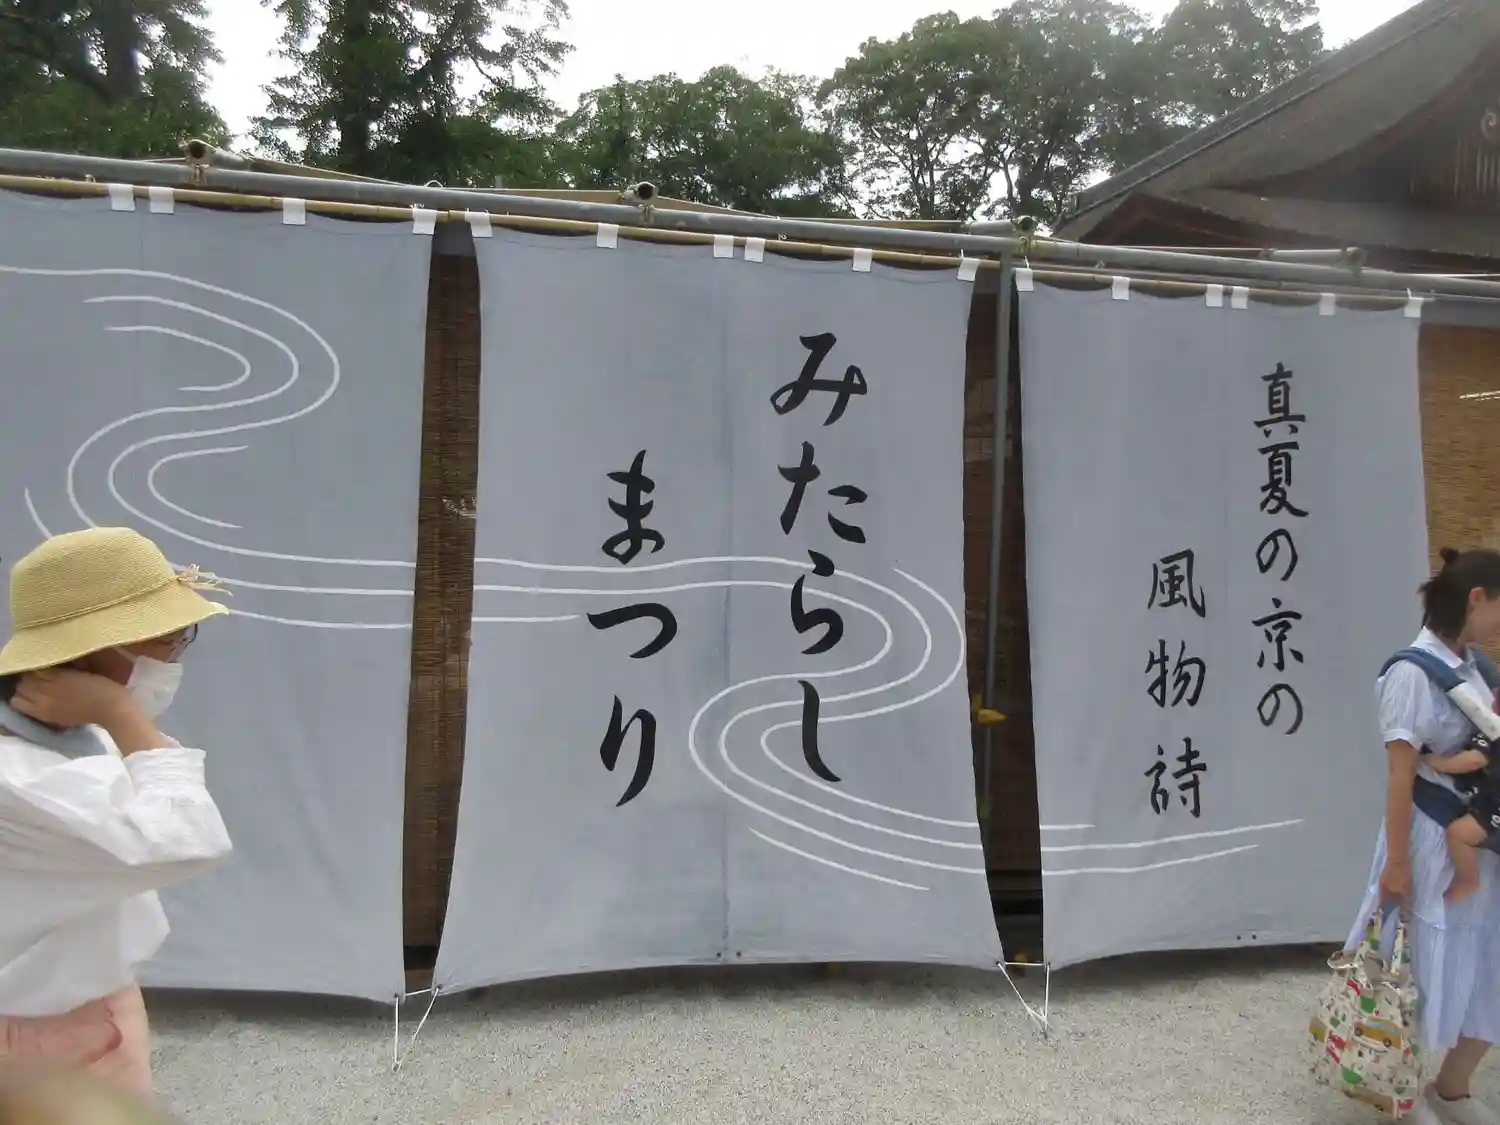 真夏の京の
風物詩
みたらし
まつり